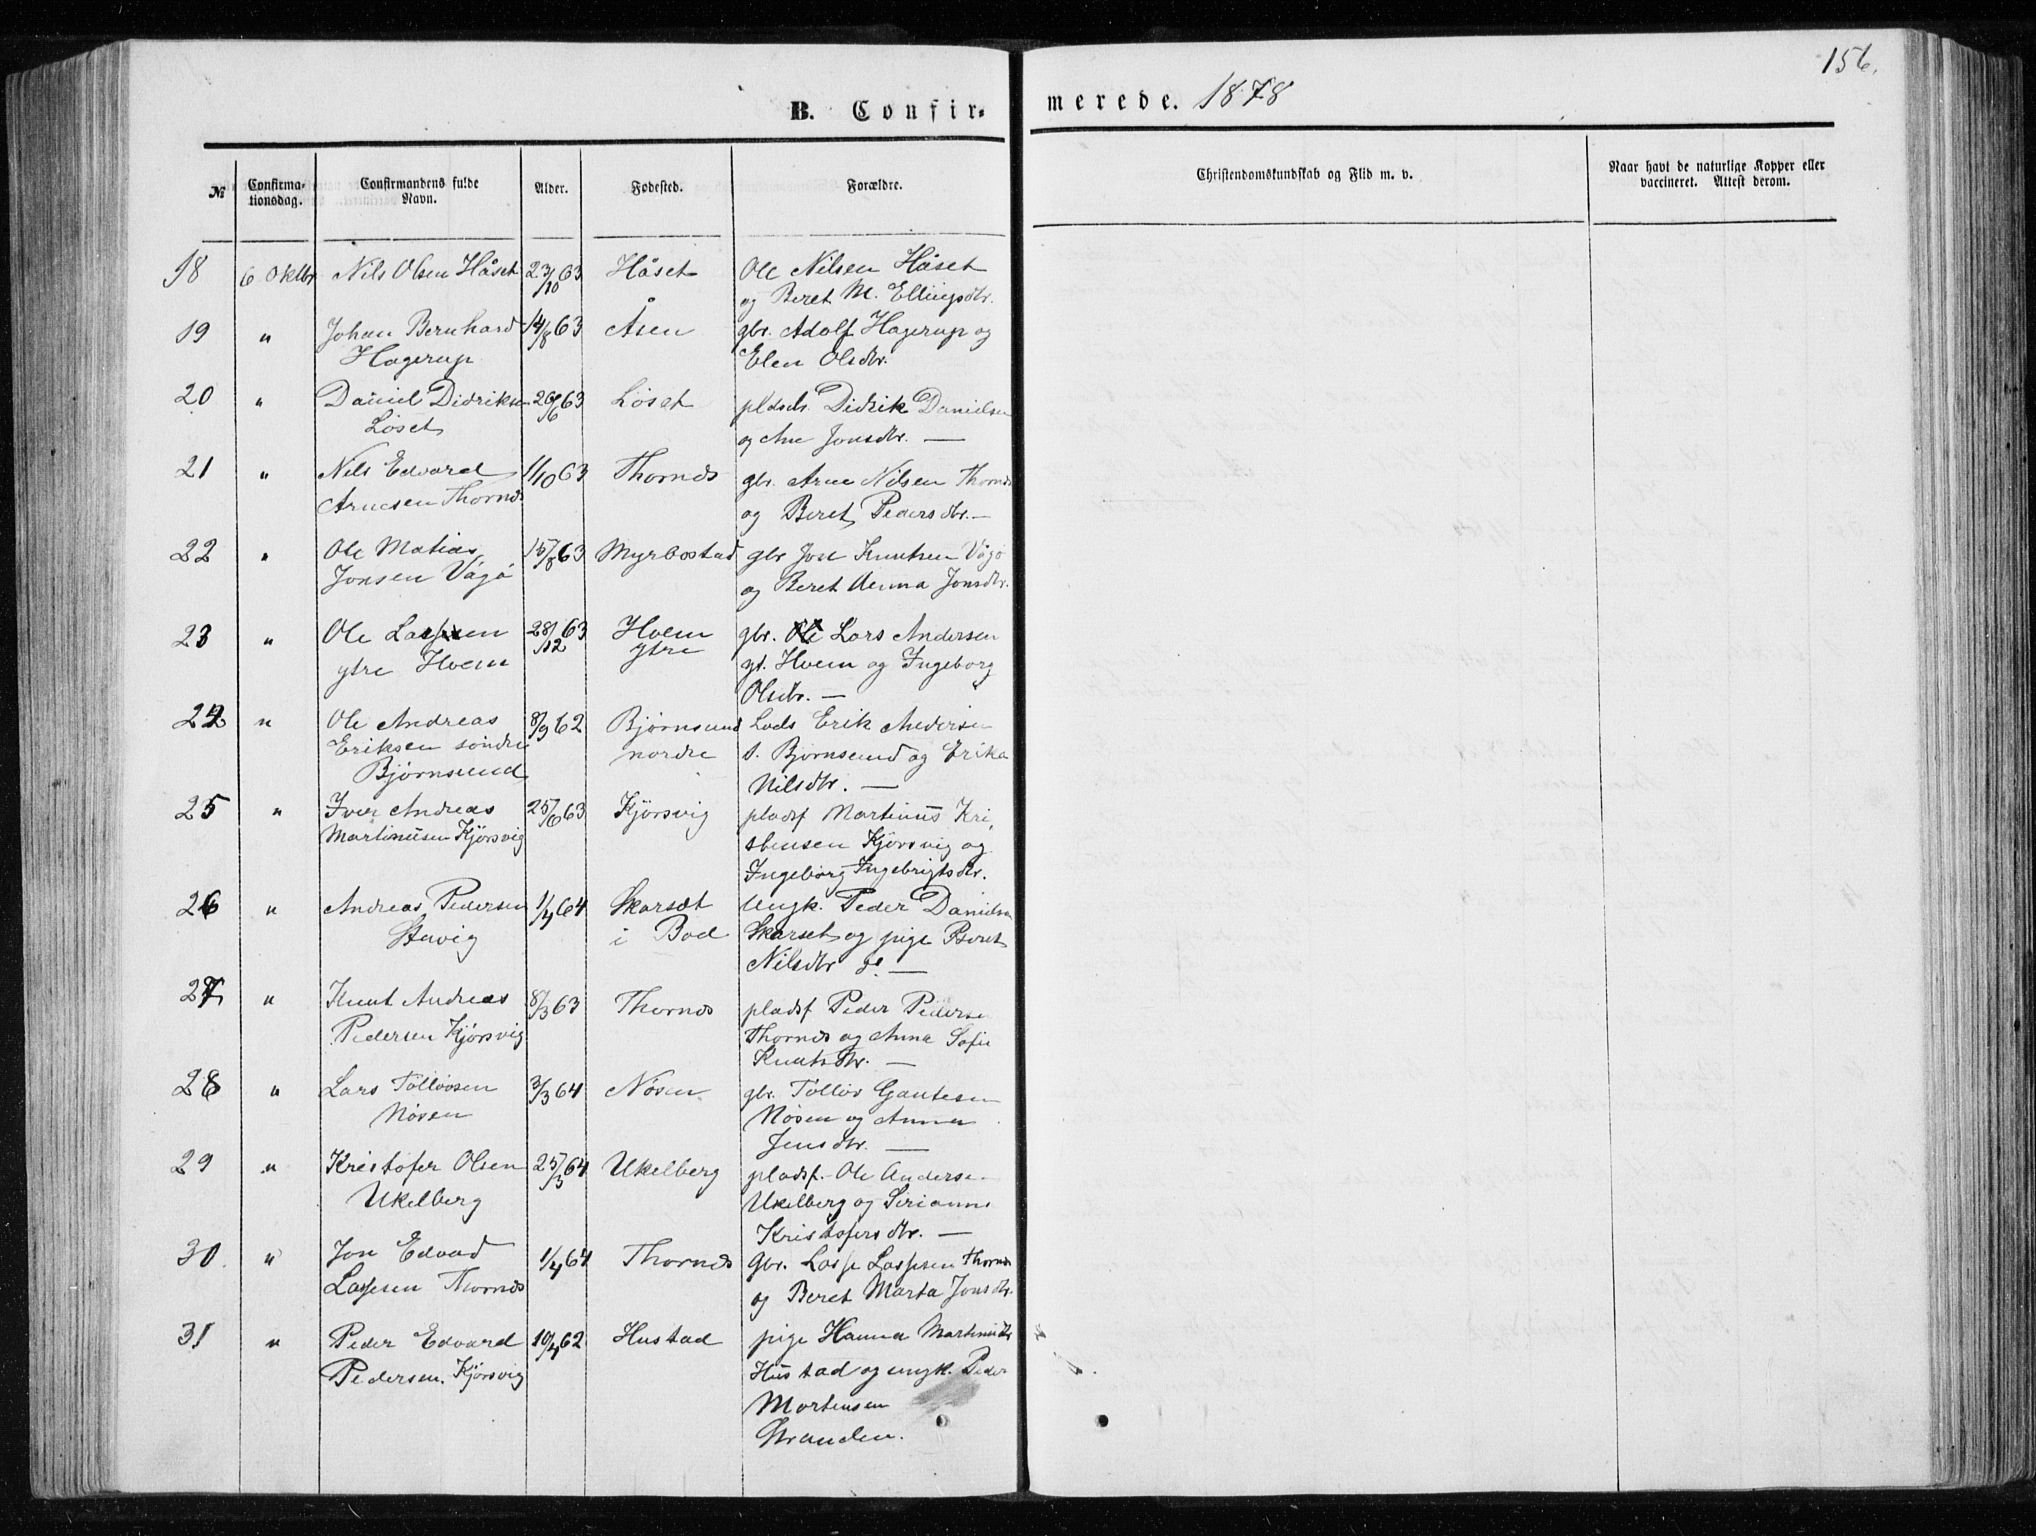 156.
B. Confir-
merede. 1878
№
Confirma-
tionsdag.
Confirmandens fulde
Navn.
Alder.
Fødested.
Forældre.
Christendomskundskab og Flid m. v.
Naar havt de naturlige Kopper eller
vaccineret. Attest derom.
18 6 Oktbr Nils Olsen Håset 23/10 63 Håset Ole Nilsen Håset
og Beret M. Ellingsdtr.
19 " Johan Bernhard 14/8 63 Åsen gbr. Adolf Hagerup og
Hagerup Elen Olsdtr.
20 " Daniel Didriksen 26/6 63 Löset Didrik Danielsen
Löset og Ane Jonsdtr. —
21 " Nils Edvard 1/10 63 Thornæs gbr. Arne Nilsen Thornæs
Arnesen Thornæs og Beret Pedersdtr. —
22 " Ole Matias 15/8 63 Myrbostad gbr Jon Knutsen Vågö
Jonsen Vågö og Beret Anna Jonsdtr.
23 " Ole Larssen 28/12 63 Hoem gbr. Lars Andersen
ytre Hoem ytre yt. Hoem og Ingeborg
Olsdtr. —
24 " Ole Andreas 8/9 62 Bjørnsund Lods Erik Andersen
Eriksen söndre nordre s. Bjørnsund og Erika
Bjørnsund Nilsdtr. —
25 " Iver Andreas 25/6 63 Kjörsvig pladsf Martinus Kri
Martinusen Kjörsvig stensen Kjörsvig og
Ingeborg Ingebrigtsdtr.
26 " Andreas Pedersen 1/4 64 Skarsæt Ungk. Peder Danielsen
Stavig i Bod Skarset og pige Beret
Nilsdtr —
27 " Knut Andreas 8/3 63 Thornæs pladsf Peder Pedersen
Pedersen Kjörsvig Thornæs og Anna Sofie
Knutsdtr. —
28 " Lars Tollövsen 3/3 64 Nösen gbr. Tollöv Gautesen
Nösen Nösen og Anna
Jensdtr. —
29 " Kristofer Olsen 25/3 64 Ukelberg pladsf. Ole Andersen
Ukelberg Ukelberg og Serianna
Kristofersdtr. —
30 " Jon Edvad 1/4 64 Thornæs Gbr. Lasse Lassesen Thornæs
Lassesen Thornæs og Beret Marta Jonsdtr.
31 " Peder Edvard 10/4 62 Hustad pige Hanna Martinusdtr
Pedersen. Kjörsvig Hustad og ungk. Peder
Mortensen
Stranden.